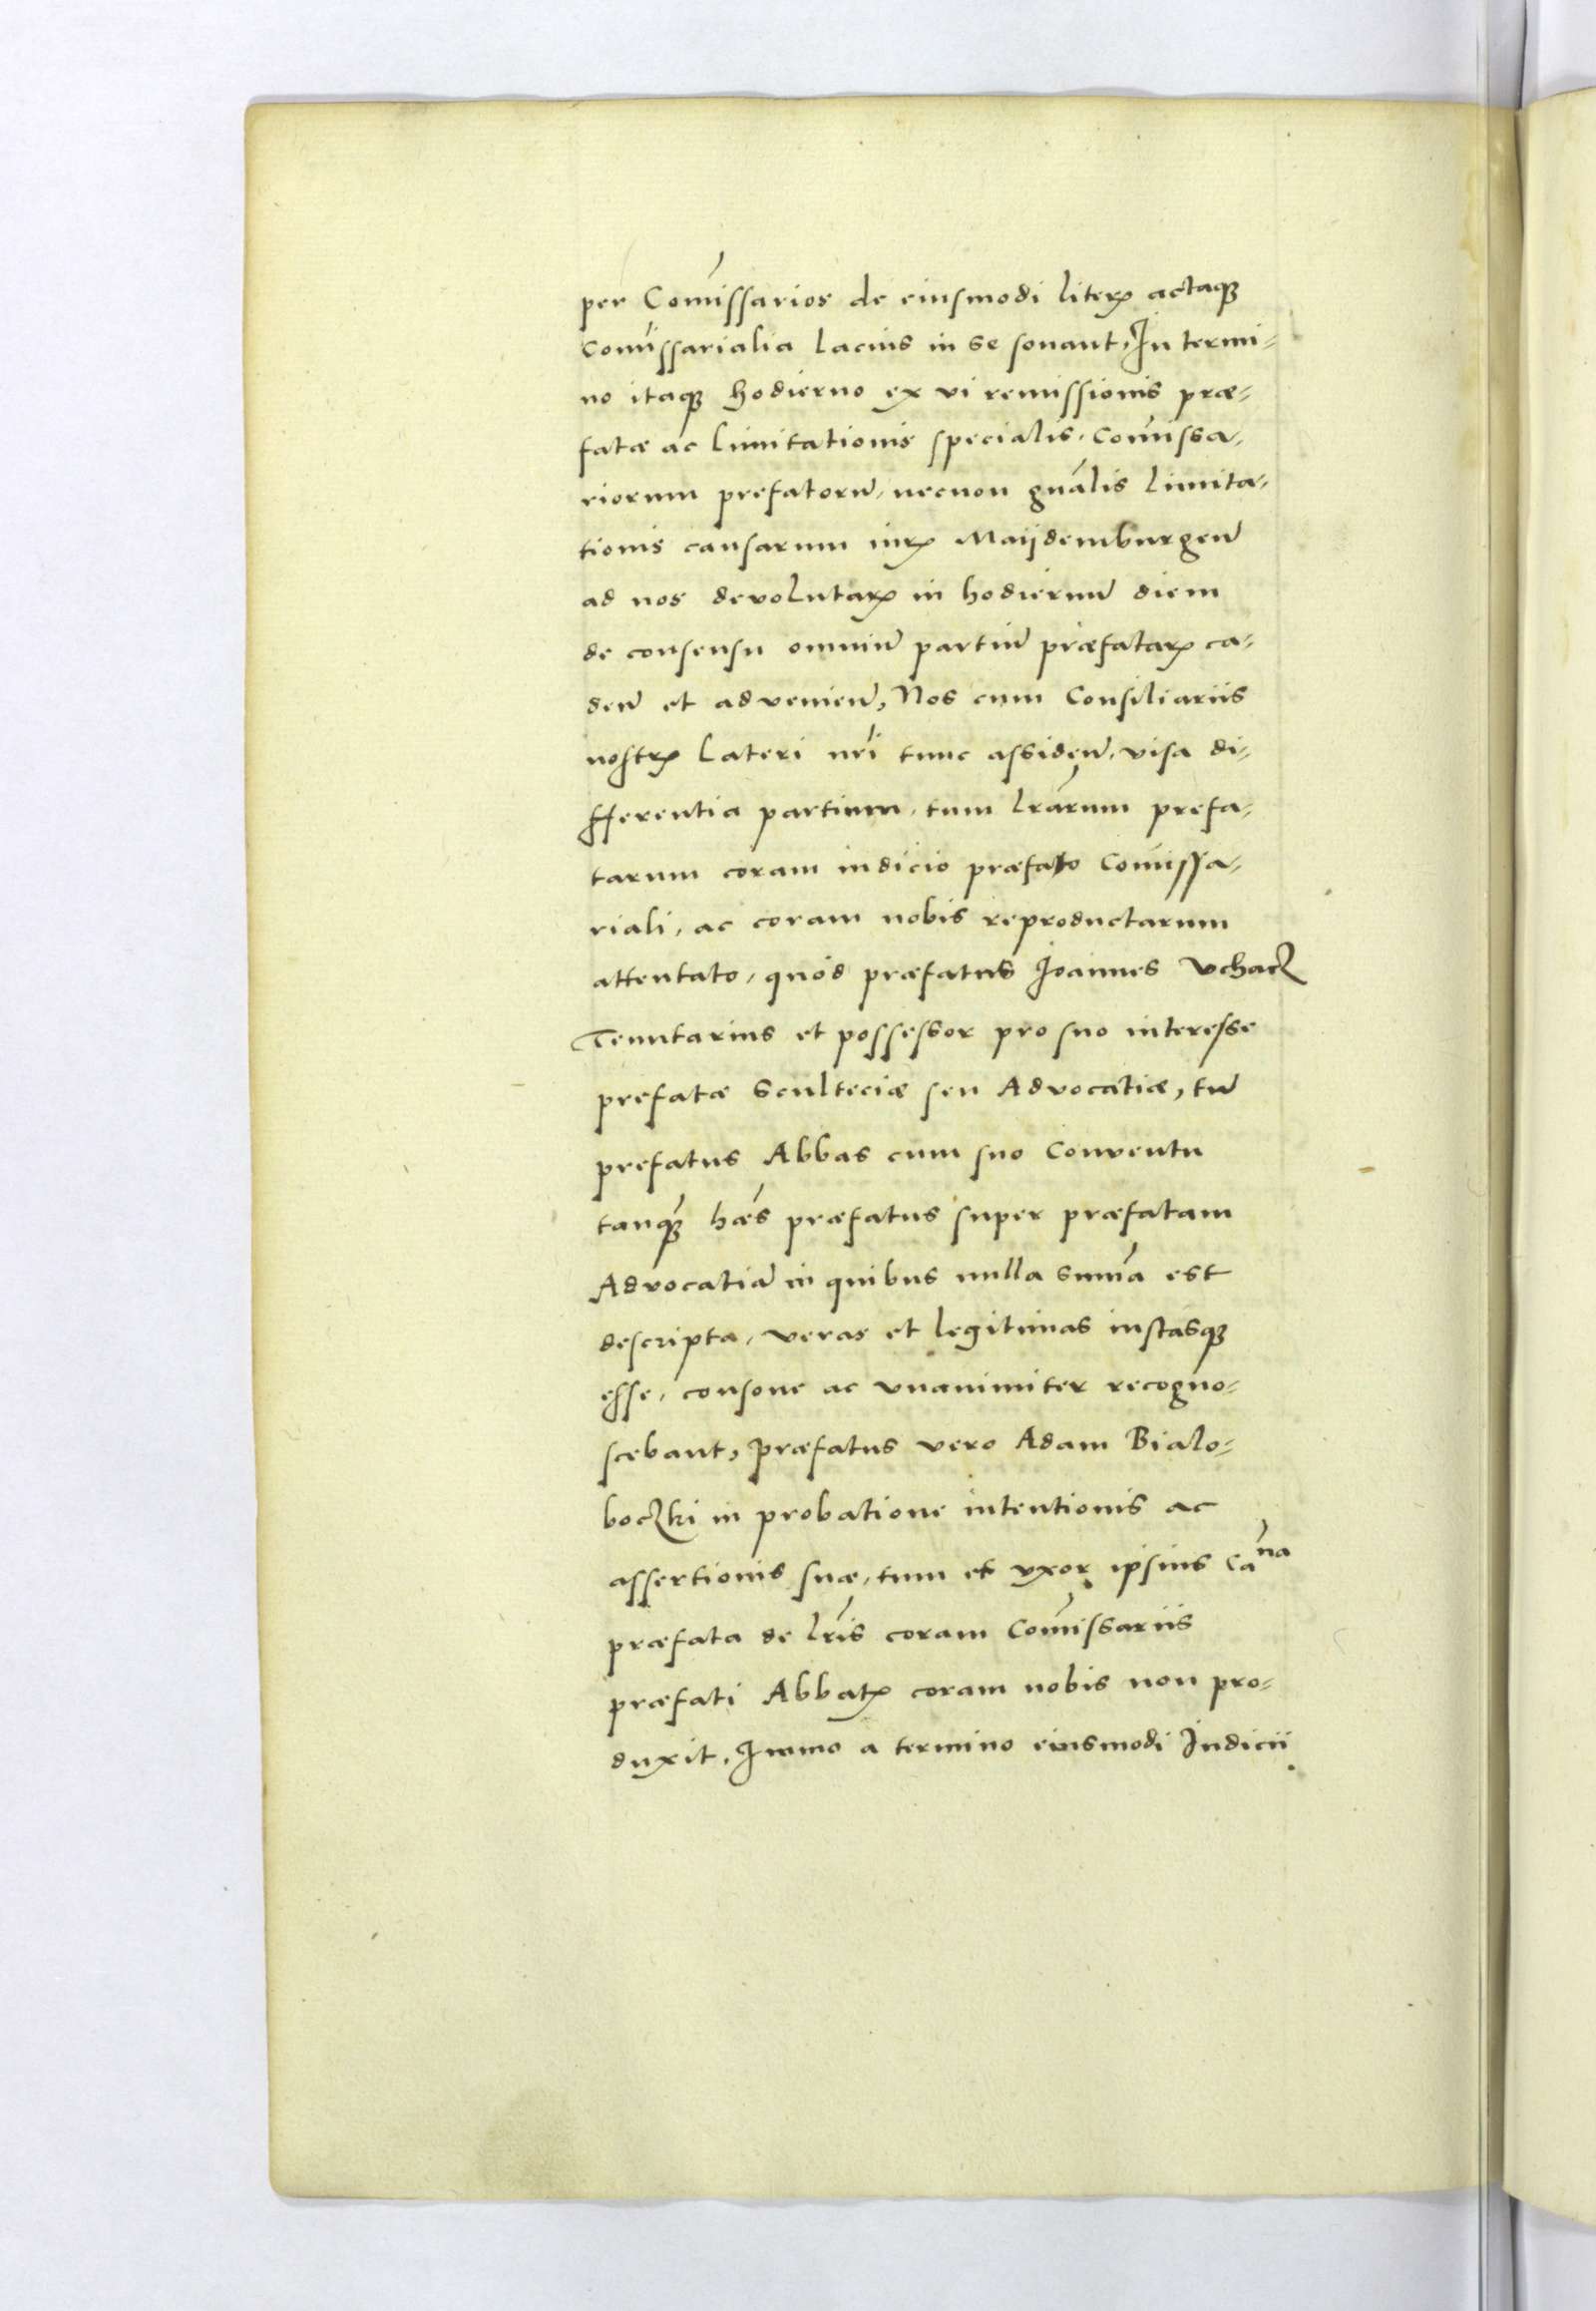 per Com̃issarios de eiusmodi literꝝ actaqꝫ
Com̃issarialia lacius in se sonant, In termi-
no itaqꝫ hodierno ex vi remissionis præ-
fatæ ac limitationis specialis, Com̃issa-
riorum prefatorũ, necnon gnãlis limita-
tionis causarum iurꝭ Maijdemburgeñ
ad nos devolutarꝝ in hodiernũ diem
de consensu omniũ partiũ præfatarꝝ ca-
deñ et advenieñ, Nos cum Consiliariis
nostrꝭ lateri nr̃i tunc assideñ, visa di-
fferentia partium, tum lr̃arum prefa-
tarum coram iudicio præfato Com̃issa-
riali, ac coram nobis reproductarum
attentato, quòd præfatus Ioannes Vchacz
Tenutarius et possessor pro suo interesse
prefatæ Sculteciæ seu Advocatiæ, tũ
prefatus Abbas cum suo Conventu
tanqꝫ̃ hæ̃s præfatus super præfatam
Advocatiã in quibus nulla sum̃a est
descripta, veras et legitimas iustasqꝫ
esse, consone ac vnanimiter recogno-
scebant, præfatus vero Adam Bialo-
boczki in probatione intentionis ac
assertionis suæ, tum et vxor ipsius Cãna
præfata de lr̃is coram Com̃issariis
præfati Abbatꝭ coram nobis non pro-
duxit, Immo a termino eiusmodi Iudicii